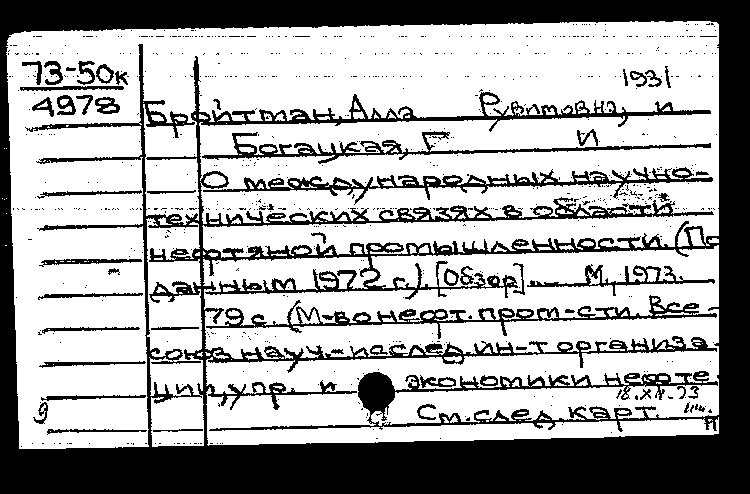 73-50к
4978
1931
Бройтман, Алла Рувимовна, и
Богацкая, Г И
О международных научно-
технических связях в области
нефтяной промышленности. (По
данным 1972 г.). [Обзор]... М., 1973.
79 с. (М-во нефт. пром-сти. Все-
союз. науч.-исслед. ин-т организа-
ции, упр. и экономики нефте-
18.XII.73
См. след. карт.
9